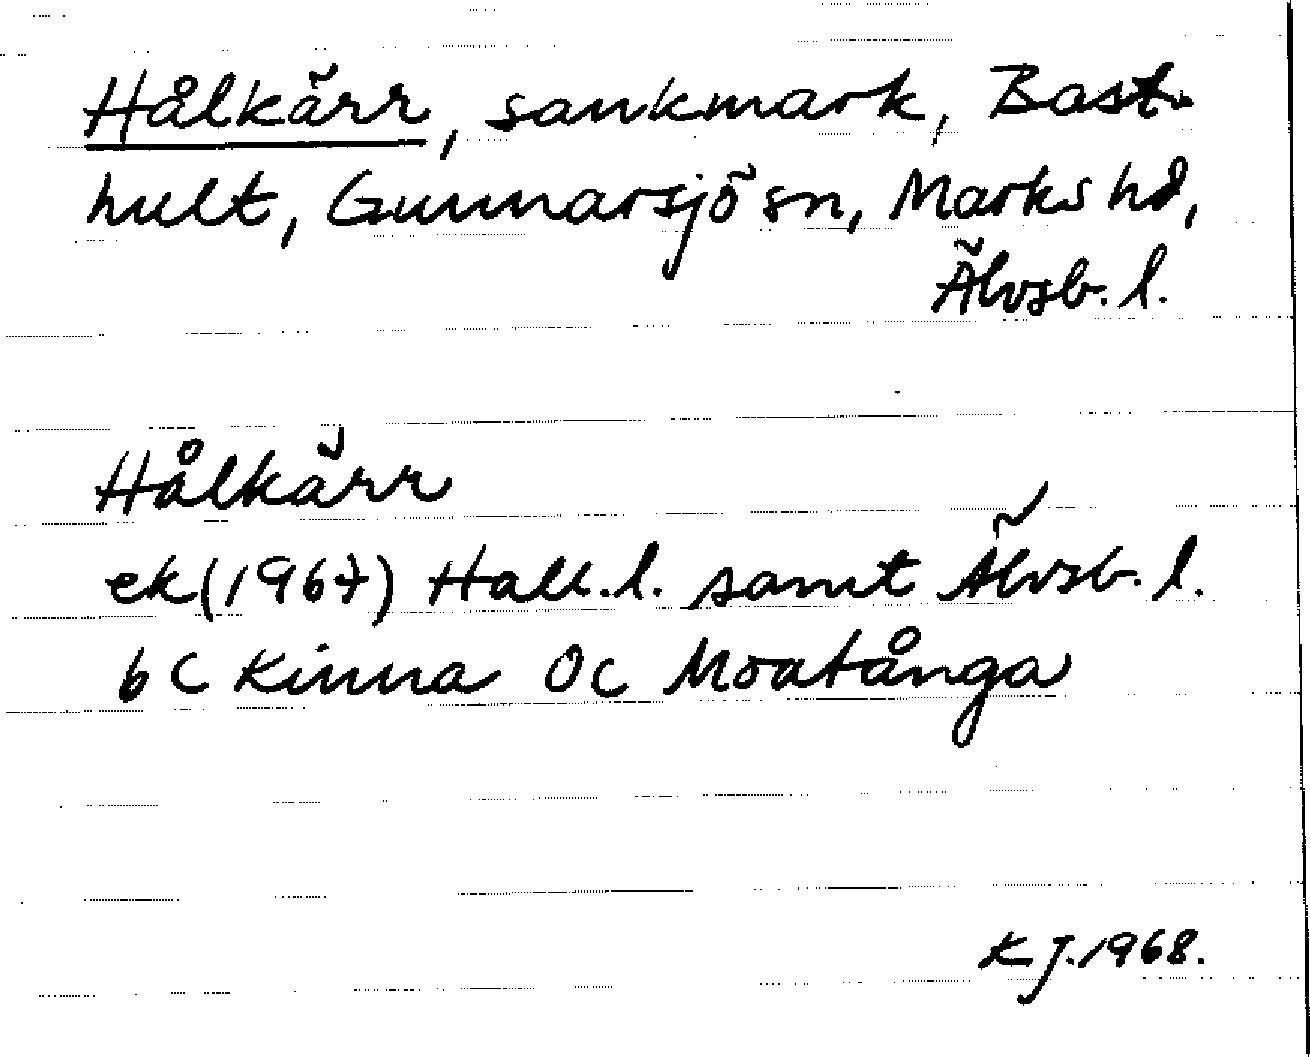 Hålkärr, sankmark, Bast-
hult, Gunnarsjö sn, Marks hd,
Älvsb. l.
Hålkärr
ek (1967) Hall. l. samt Älvsb. l.
6 C Kinna 0c Moatånga
KJ. 1968.